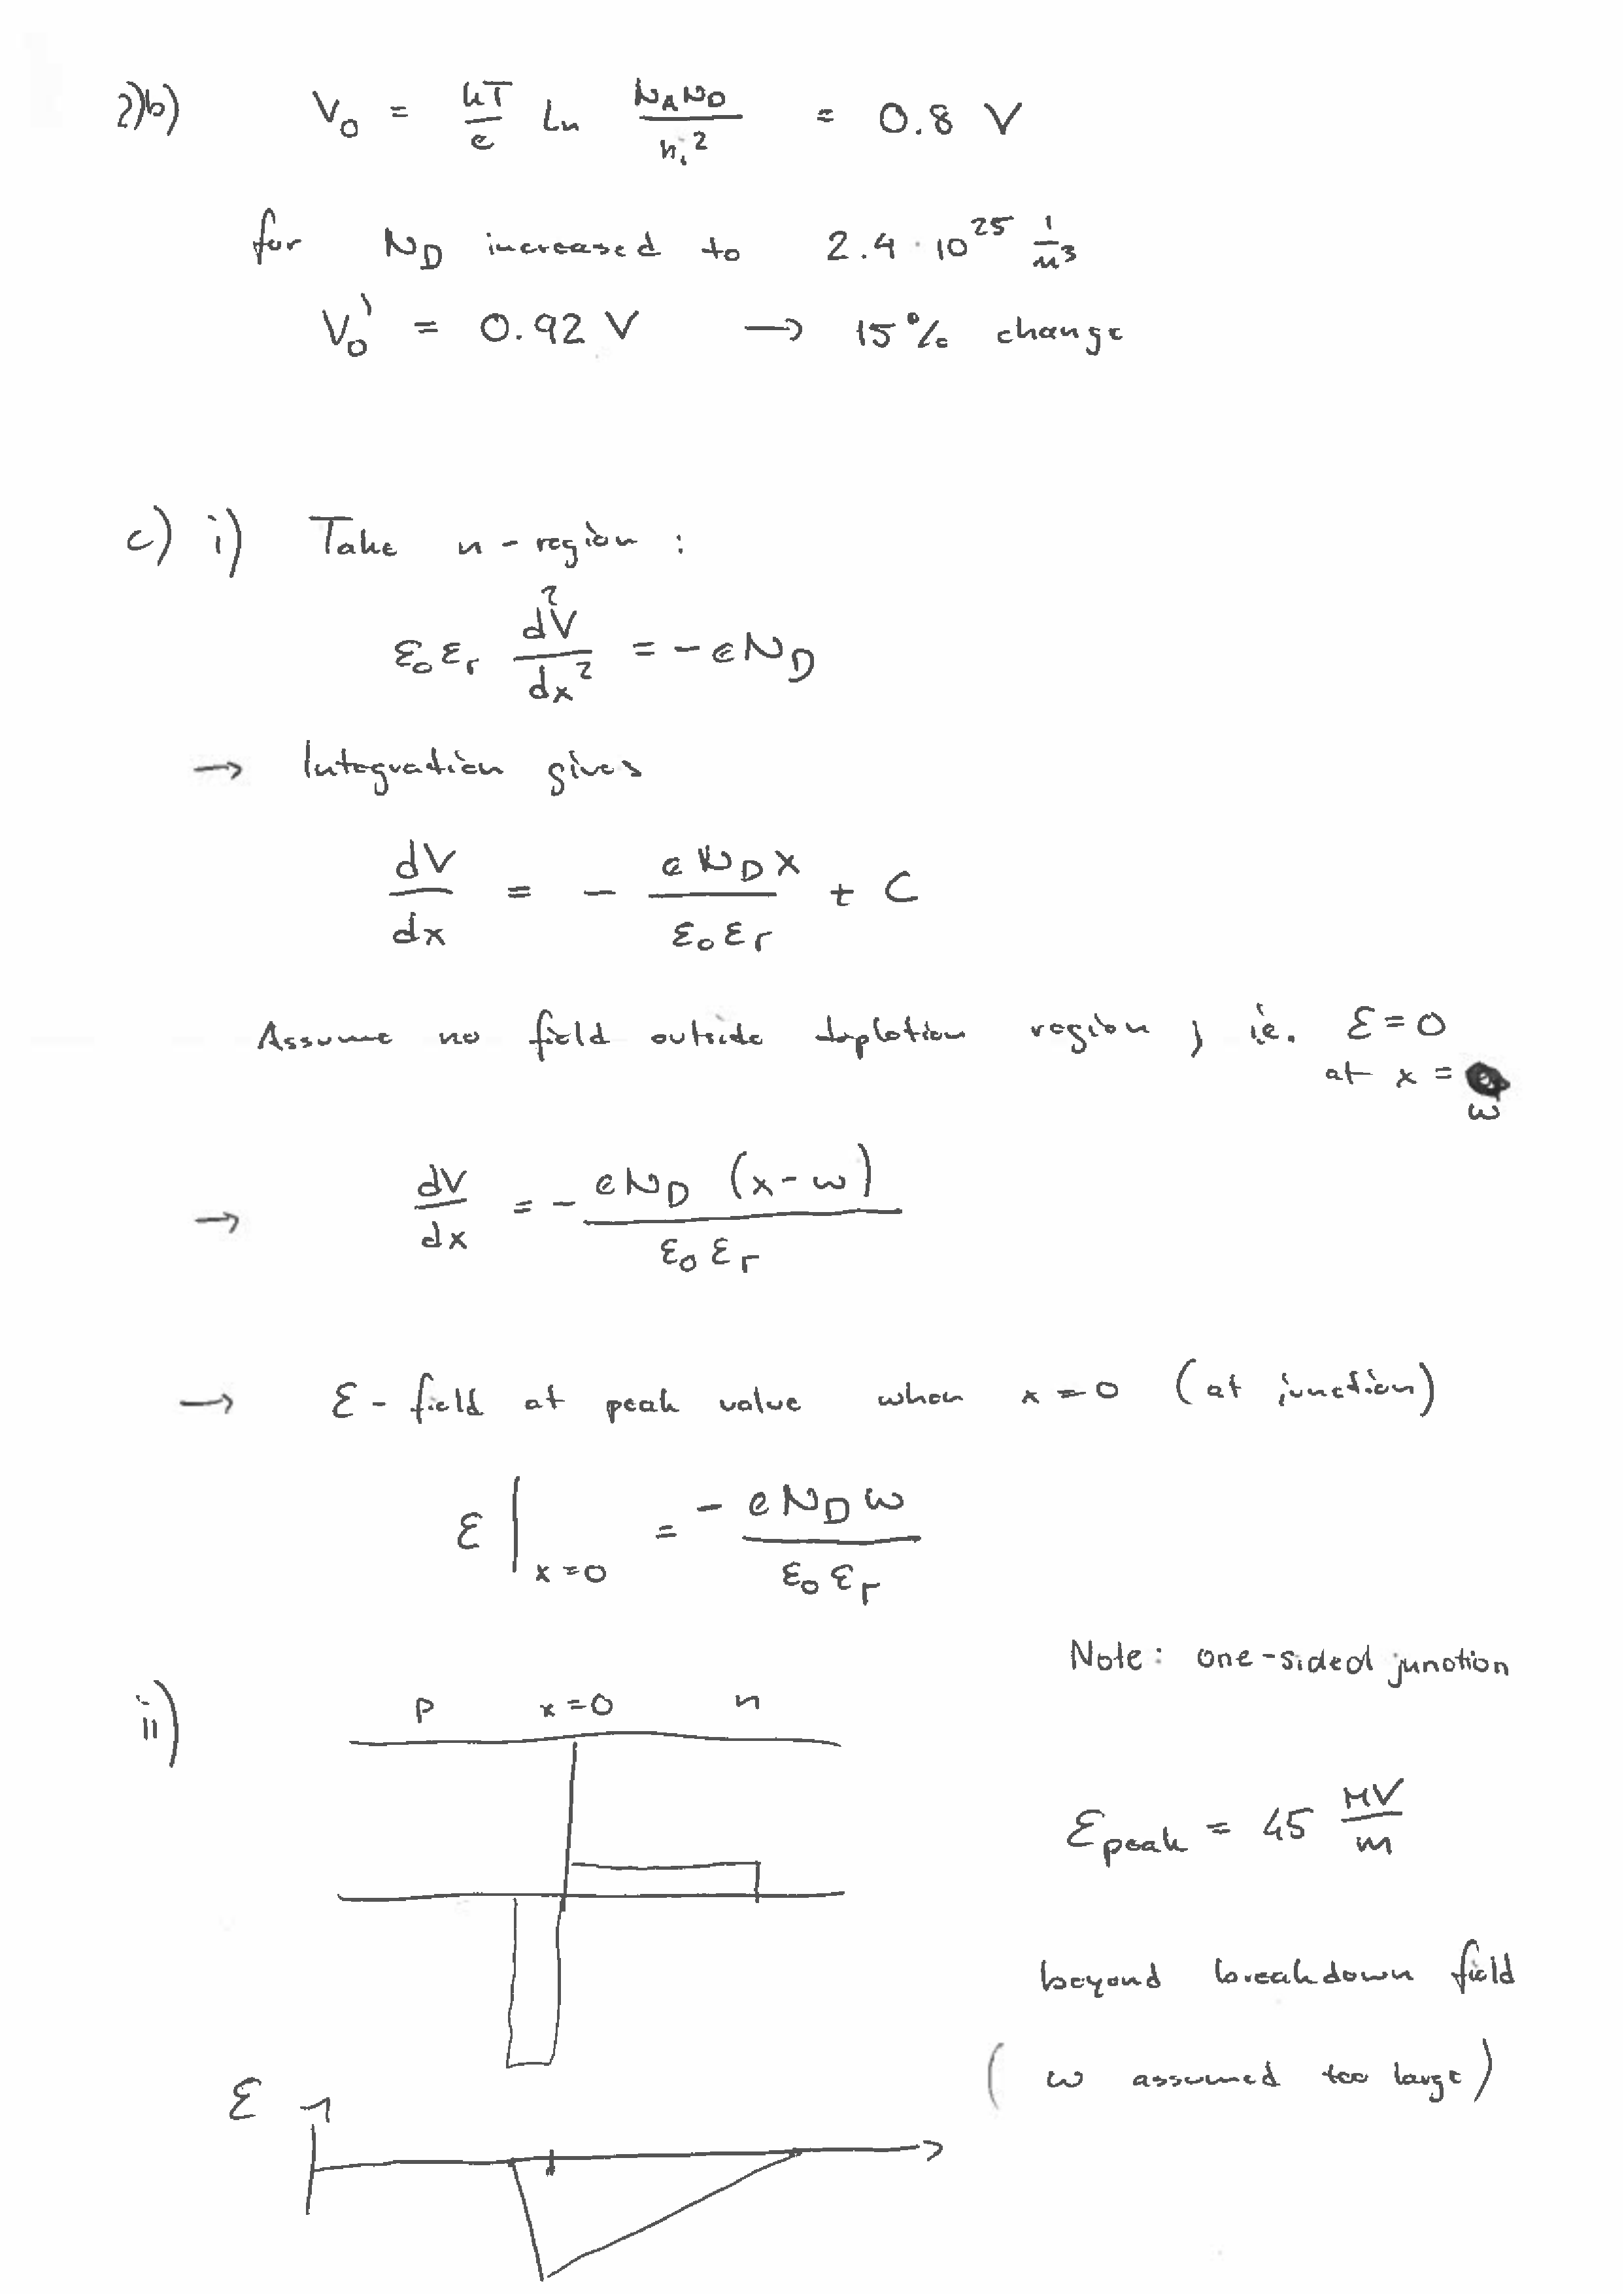 2)b) V₀ = kT/e Ln N_A N_D / n_i² = 0.8 V
for N_D increased to 2.4 · 10²⁵ 1/m³
V₀' = 0.92 V → 15% change
c) i) Take n-region :
ε₀ε_r d²V/dx² = -eN_D
→ Integration gives
dV/dx = - eN_D x / ε₀ε_r + C
Assume no field outside depletion region, ie. ℰ=0
at x = w
→ dV/dx = - eN_D (x-w) / ε₀ε_r
→ ℰ-field at peak value when x=0 (at junction)
ℰ|ₓ₌₀ = - eN_D w / ε₀ε_r
Note: one-sided junction
ii) p x=0 n
ℰ_peak = 45 MV/m
beyond breakdown field
(w assumed too large)
ℰ